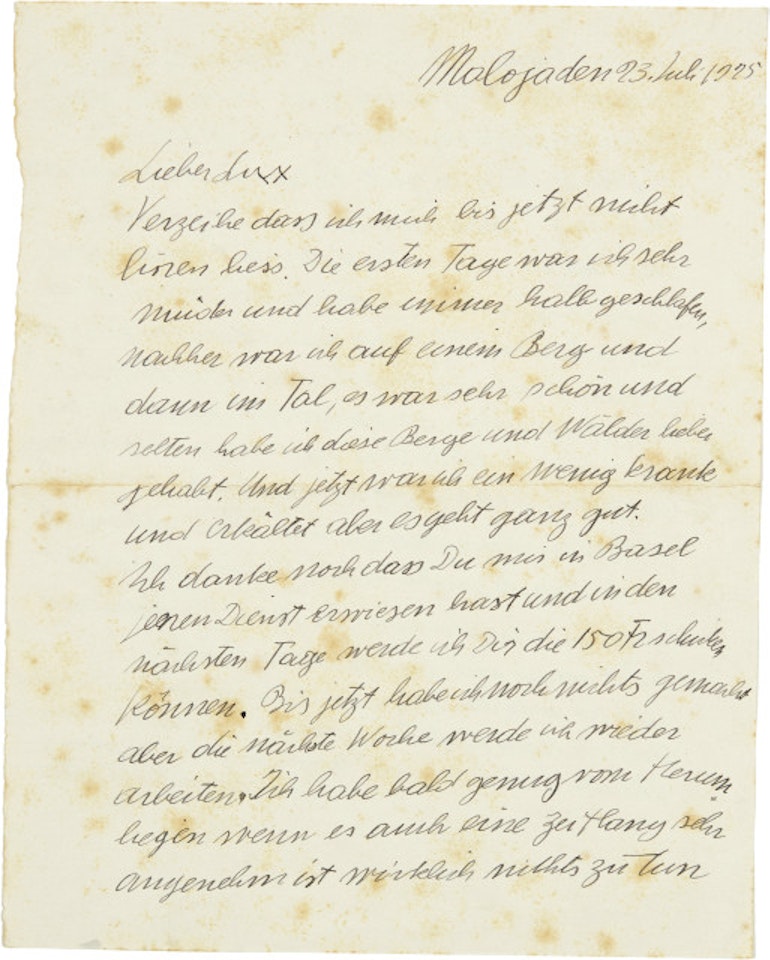 Maloja den 23. Juli 1925
Lieber Lux
Verzeihe dass ich mich bis jetzt nicht
hören liess. Die ersten Tage war ich sehr
müde und habe immer halb geschlafen,
nachher war ich auf einem Berg und
dann im Tal, es war sehr schön und
selten habe ich diese Berge und Wälder lieber
gehabt. Und jetzt war ich ein wenig krank
und erkältet aber es geht ganz gut.
Ich danke noch dass Du mir in Basel
jenen Dienst erwiesen hast und in den
nächsten Tage werde ich Dir die 150 Fr schicken
können. Bis jetzt habe ich noch nichts gemacht
aber die nächste Woche werde ich wieder
arbeiten. Ich habe bald genug vom Herum
liegen wenn es auch eine Zeitlang sehr
angenehm ist wirklich nichts zu tun